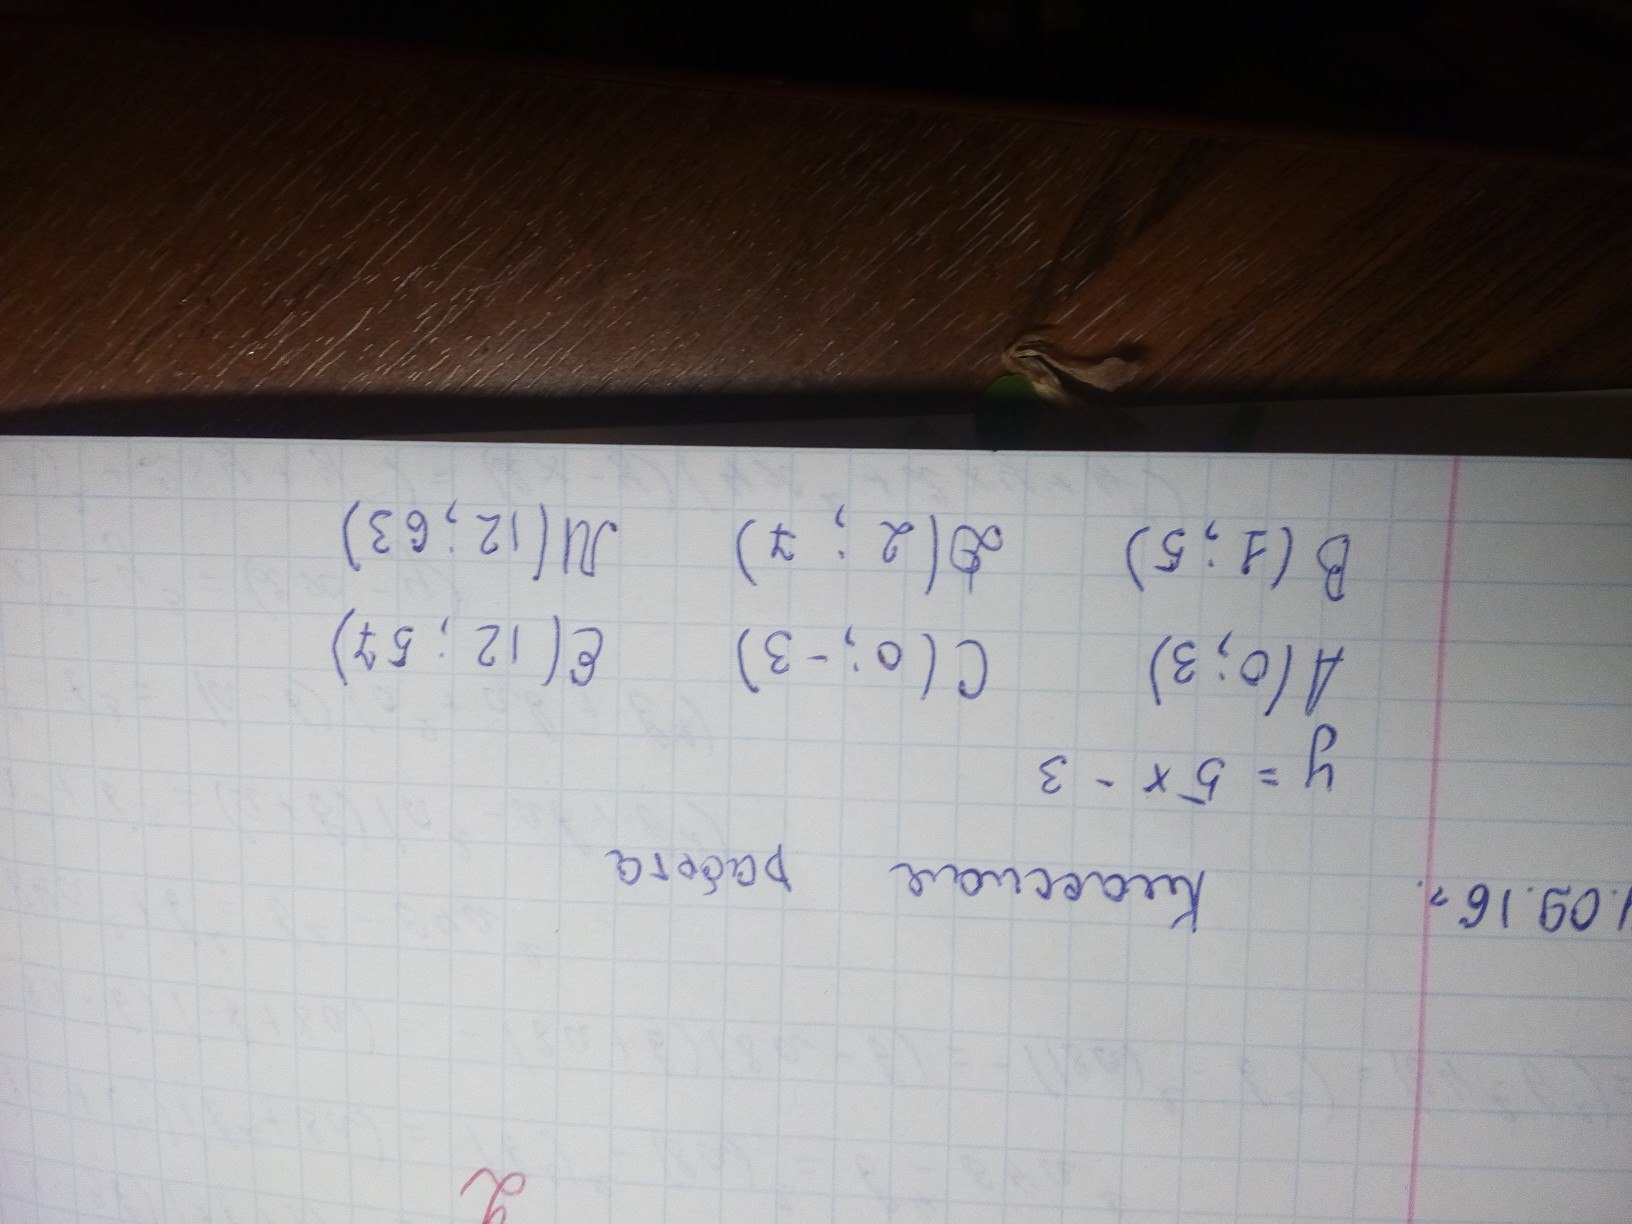 1.09.16г.
Классная работа
y = 5x - 3
A(0; 3) C(0; -3) E(12; 57)
B(1; 5) D(2; 7) M(12; 63)